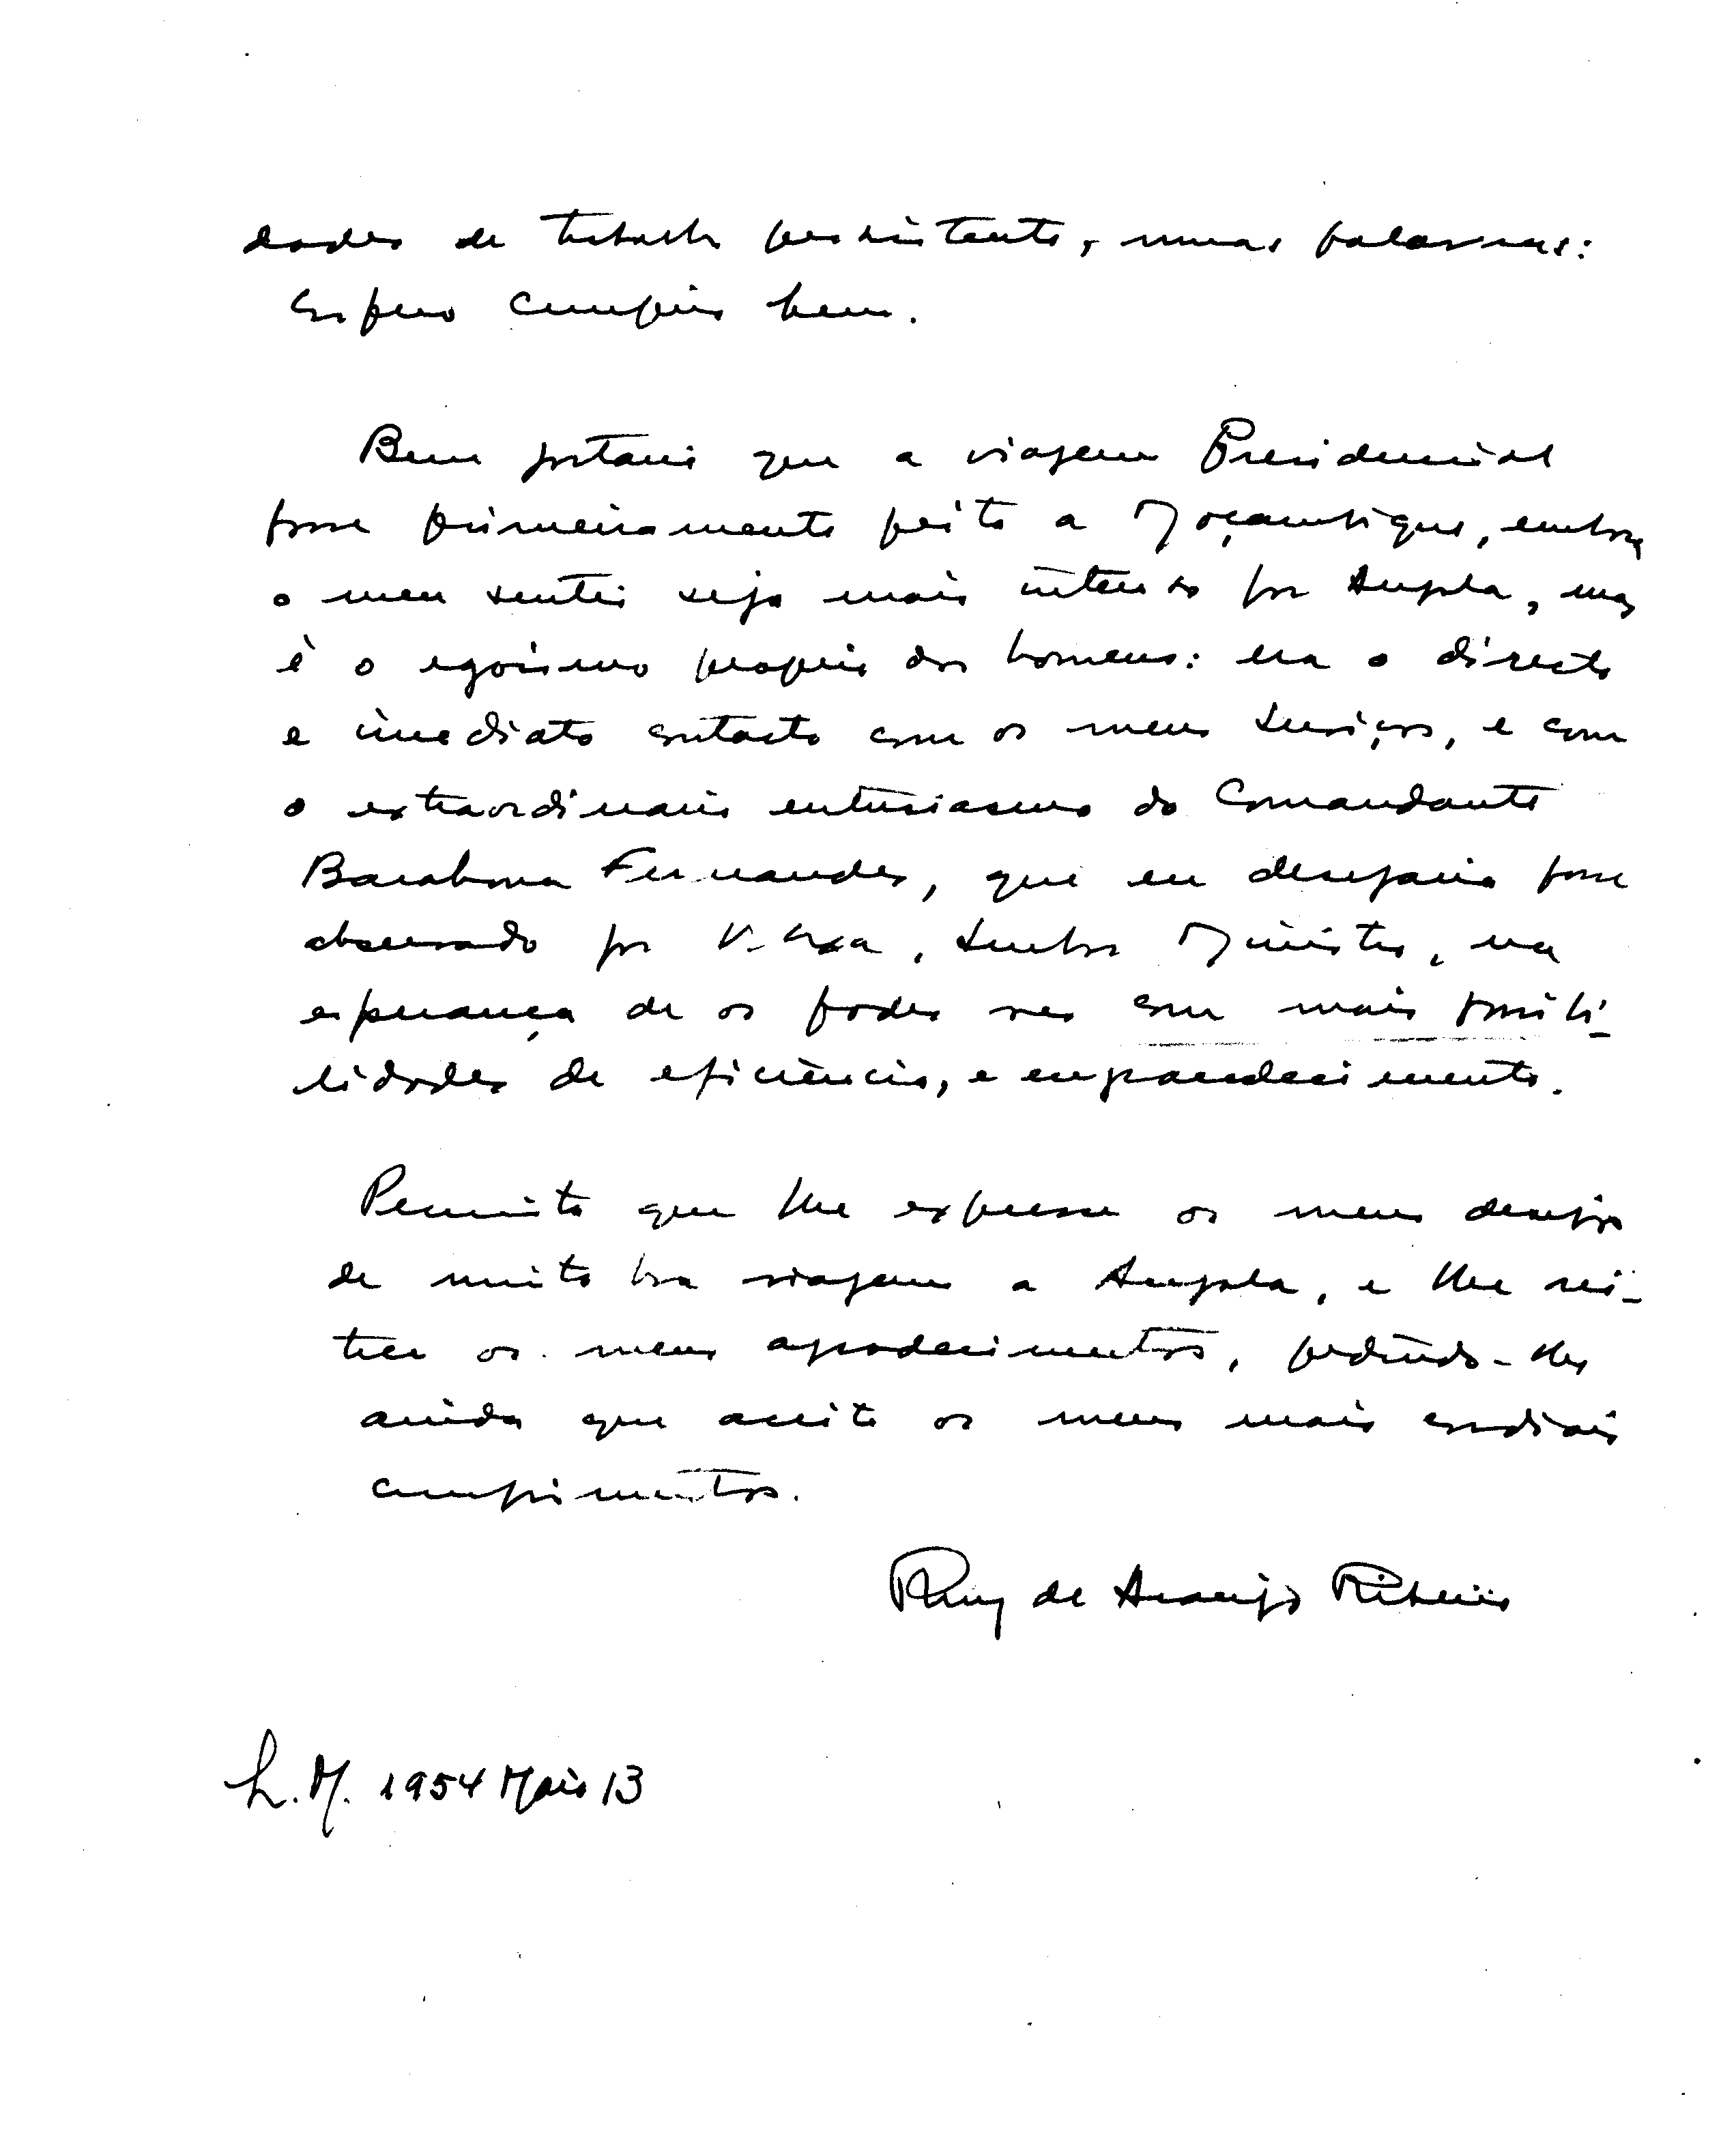 dades de trabalho persistente, numas palavras:
Espero cumprir bem.
Bem gostaria que a viagem Presidencial
fosse primeiramente feita a Moçambique, embora
o meu sentir seja mais intenso por Angola, mas
é o egoismo proprio dos homens: era o directo
e imediato contacto com os meus Serviços, e com
o extraordinario entusiasmo do Comandante
Barahona Fernandes, que eu desejaria fosse
observado por V. Exa, Senhor Ministro, na
esperança de os poder ver com mais possibi-
lidades de eficiência, e engrandecimento.
Permita que lhe expresse os meus desejos
de muito boa viagem a Angola, e lhe rei-
tere os meus agradecimentos, pedindo-lhe
ainda que aceite os meus mais cordiais
cumprimentos.
Ruy de Araujo Ribeiro
L.M. 1954 Maio 13